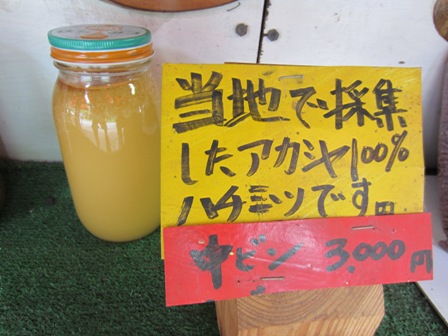 当地で採集
したアカシヤ100%
ハチミツです
中ビン 3,000円